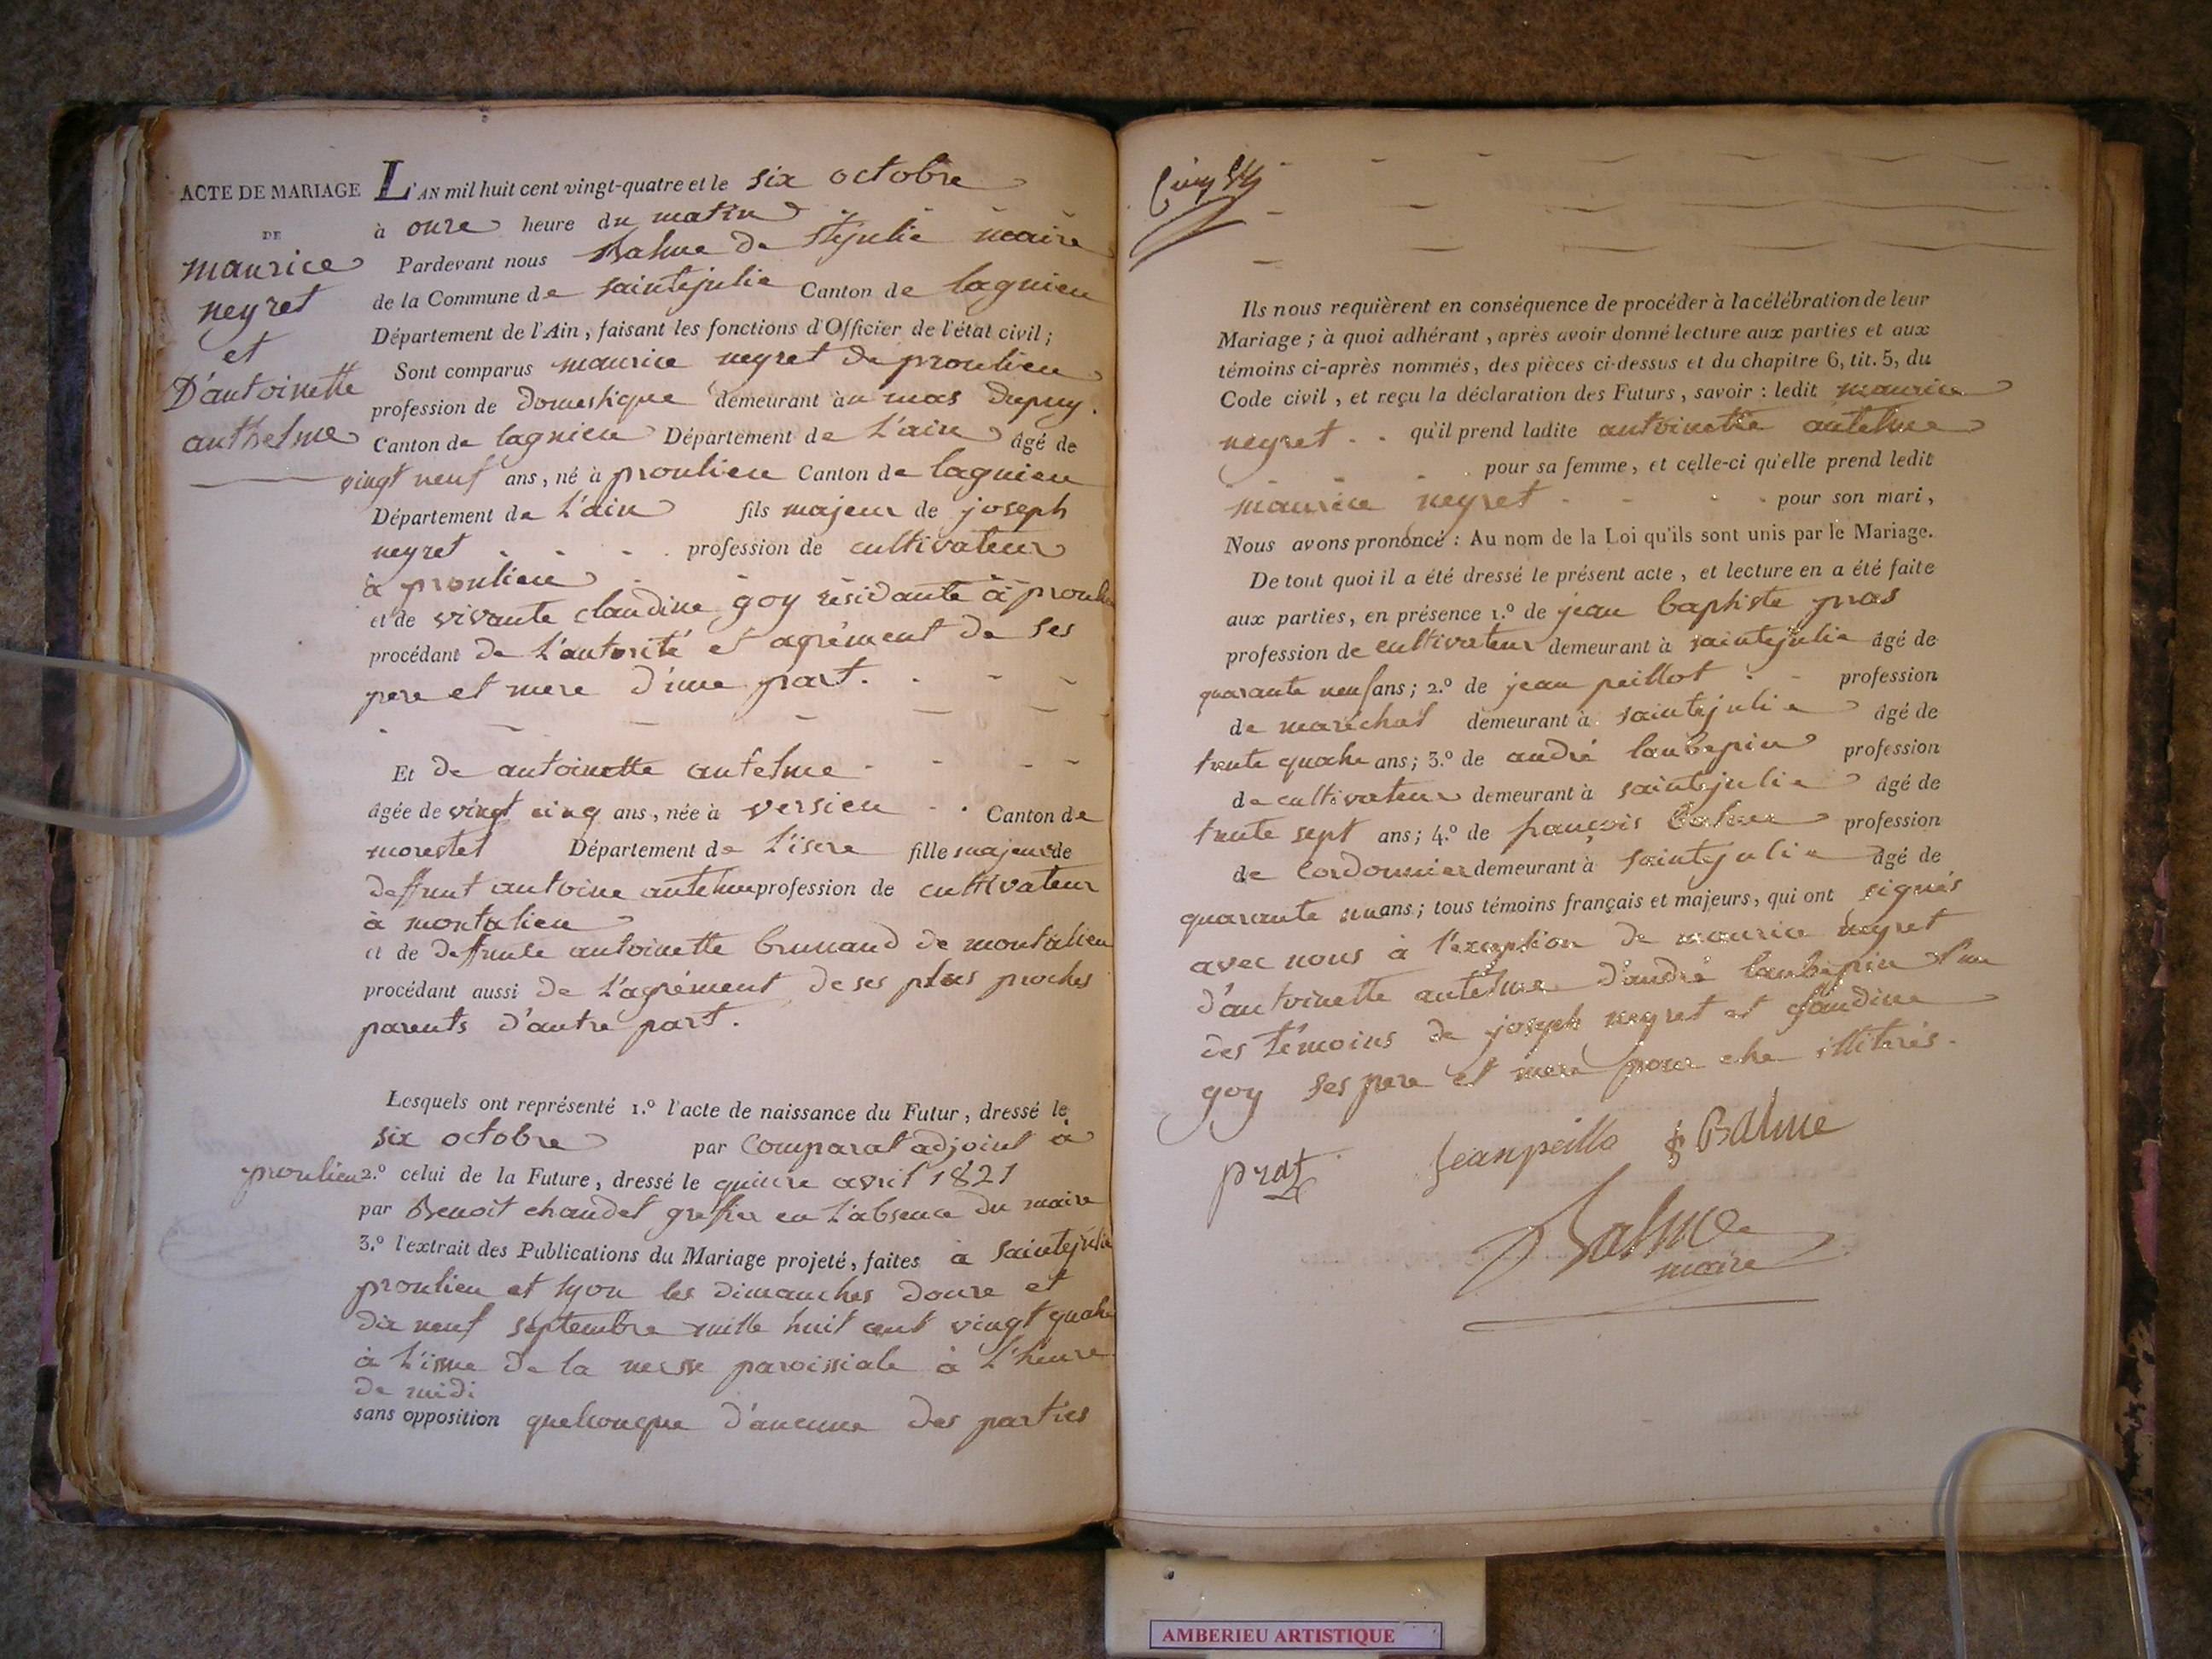 ACTE DE MARIAGE
DE
maurice
neyret
et
D'antoinette
anthelme
L'AN mil huit cent vingt-quatre et le six octobre
à onze heure du matin
Pardevant nous Balme de Ste julie maire
de la Commune de saintejulie Canton de lagnieu
Département de l'Ain, faisant les fonctions d'Officier de l'état civil;
Sont comparus maurice neyret de proulieu
profession de Domestique demeurant au mas Dupuy.
Canton de lagnieu Département de L'ain âgé de
vingt neuf ans, né à proulieu Canton de lagnieu
Département de L'ain fils majeur de joseph
neyret . . . . profession de cultivateur
à proulieu
et de vivante claudine goy résidante à proulieu
procédant de L'autorité et agrément de ses
pere et mere d'une part.
Et de antoinette antelme
âgée de vingt cinq ans, née à versieu . . Canton de
morestel Département de L'isere fille majeure de
deffunt antoine antelme profession de cultivateur
à montalieu
et de deffunte antoinette brunand de montalieu
procédant aussi de L'agrément de ses plus proches
parents d'autre part.
Lesquels ont représenté 1.º l'acte de naissance du Futur, dressé le
six octobre par Comparat adjoint à
proulieu 2.º celui de la Future, dressé le quinze avril 1821
par Benoit chaudet grefier en L'absence du maire
3.º l'extrait des Publications du Mariage projeté, faites à saintejulie
proulieu et lyon les dimanches douze et
dix neuf septembre mille huit cent vingt quatre
à L'issue de la messe paroissiale à L'heure
de midi
sans opposition quelconque d'aucune des parties
Ils nous requièrent en conséquence de procéder à la célébration de leur
Mariage; à quoi adhérant, après avoir donné lecture aux parties et aux
témoins ci-après nommés, des pièces ci-dessus et du chapitre 6, tit. 5, du
Code civil, et reçu la déclaration des Futurs, savoir: ledit maurice
neyret . . qu'il prend ladite antoinette antelme
. pour sa femme, et celle-ci qu'elle prend ledit
maurice neyret pour son mari,
Nous avons prononcé: Au nom de la Loi qu'ils sont unis par le Mariage.
De tout quoi il a été dressé le présent acte, et lecture en a été faite
aux parties, en présence 1.º de jean baptiste pras
profession de cultivateur demeurant à saintejulie âgé de
quarante neuf ans; 2.º de jean peillot profession
de maréchal demeurant à saintejulie âgé de
trente quatre ans; 3.º de andré laubepin profession
de cultivateur demeurant à saintejulie âgé de
trente sept ans; 4.º de françois balme profession
de Cordonnier demeurant à saintejulie âgé de
quarante un ans; tous témoins français et majeurs, qui ont signés
avec nous à l'exception de maurice neyret
d'antoinette antelme d'andré laubepin l'un
des témoins de joseph neyret et claudine
goy ses pere et mere pour etre illiterés.
prat jeanpeillo f Balme
Balme
maire
AMBERIEU ARTISTIQUE